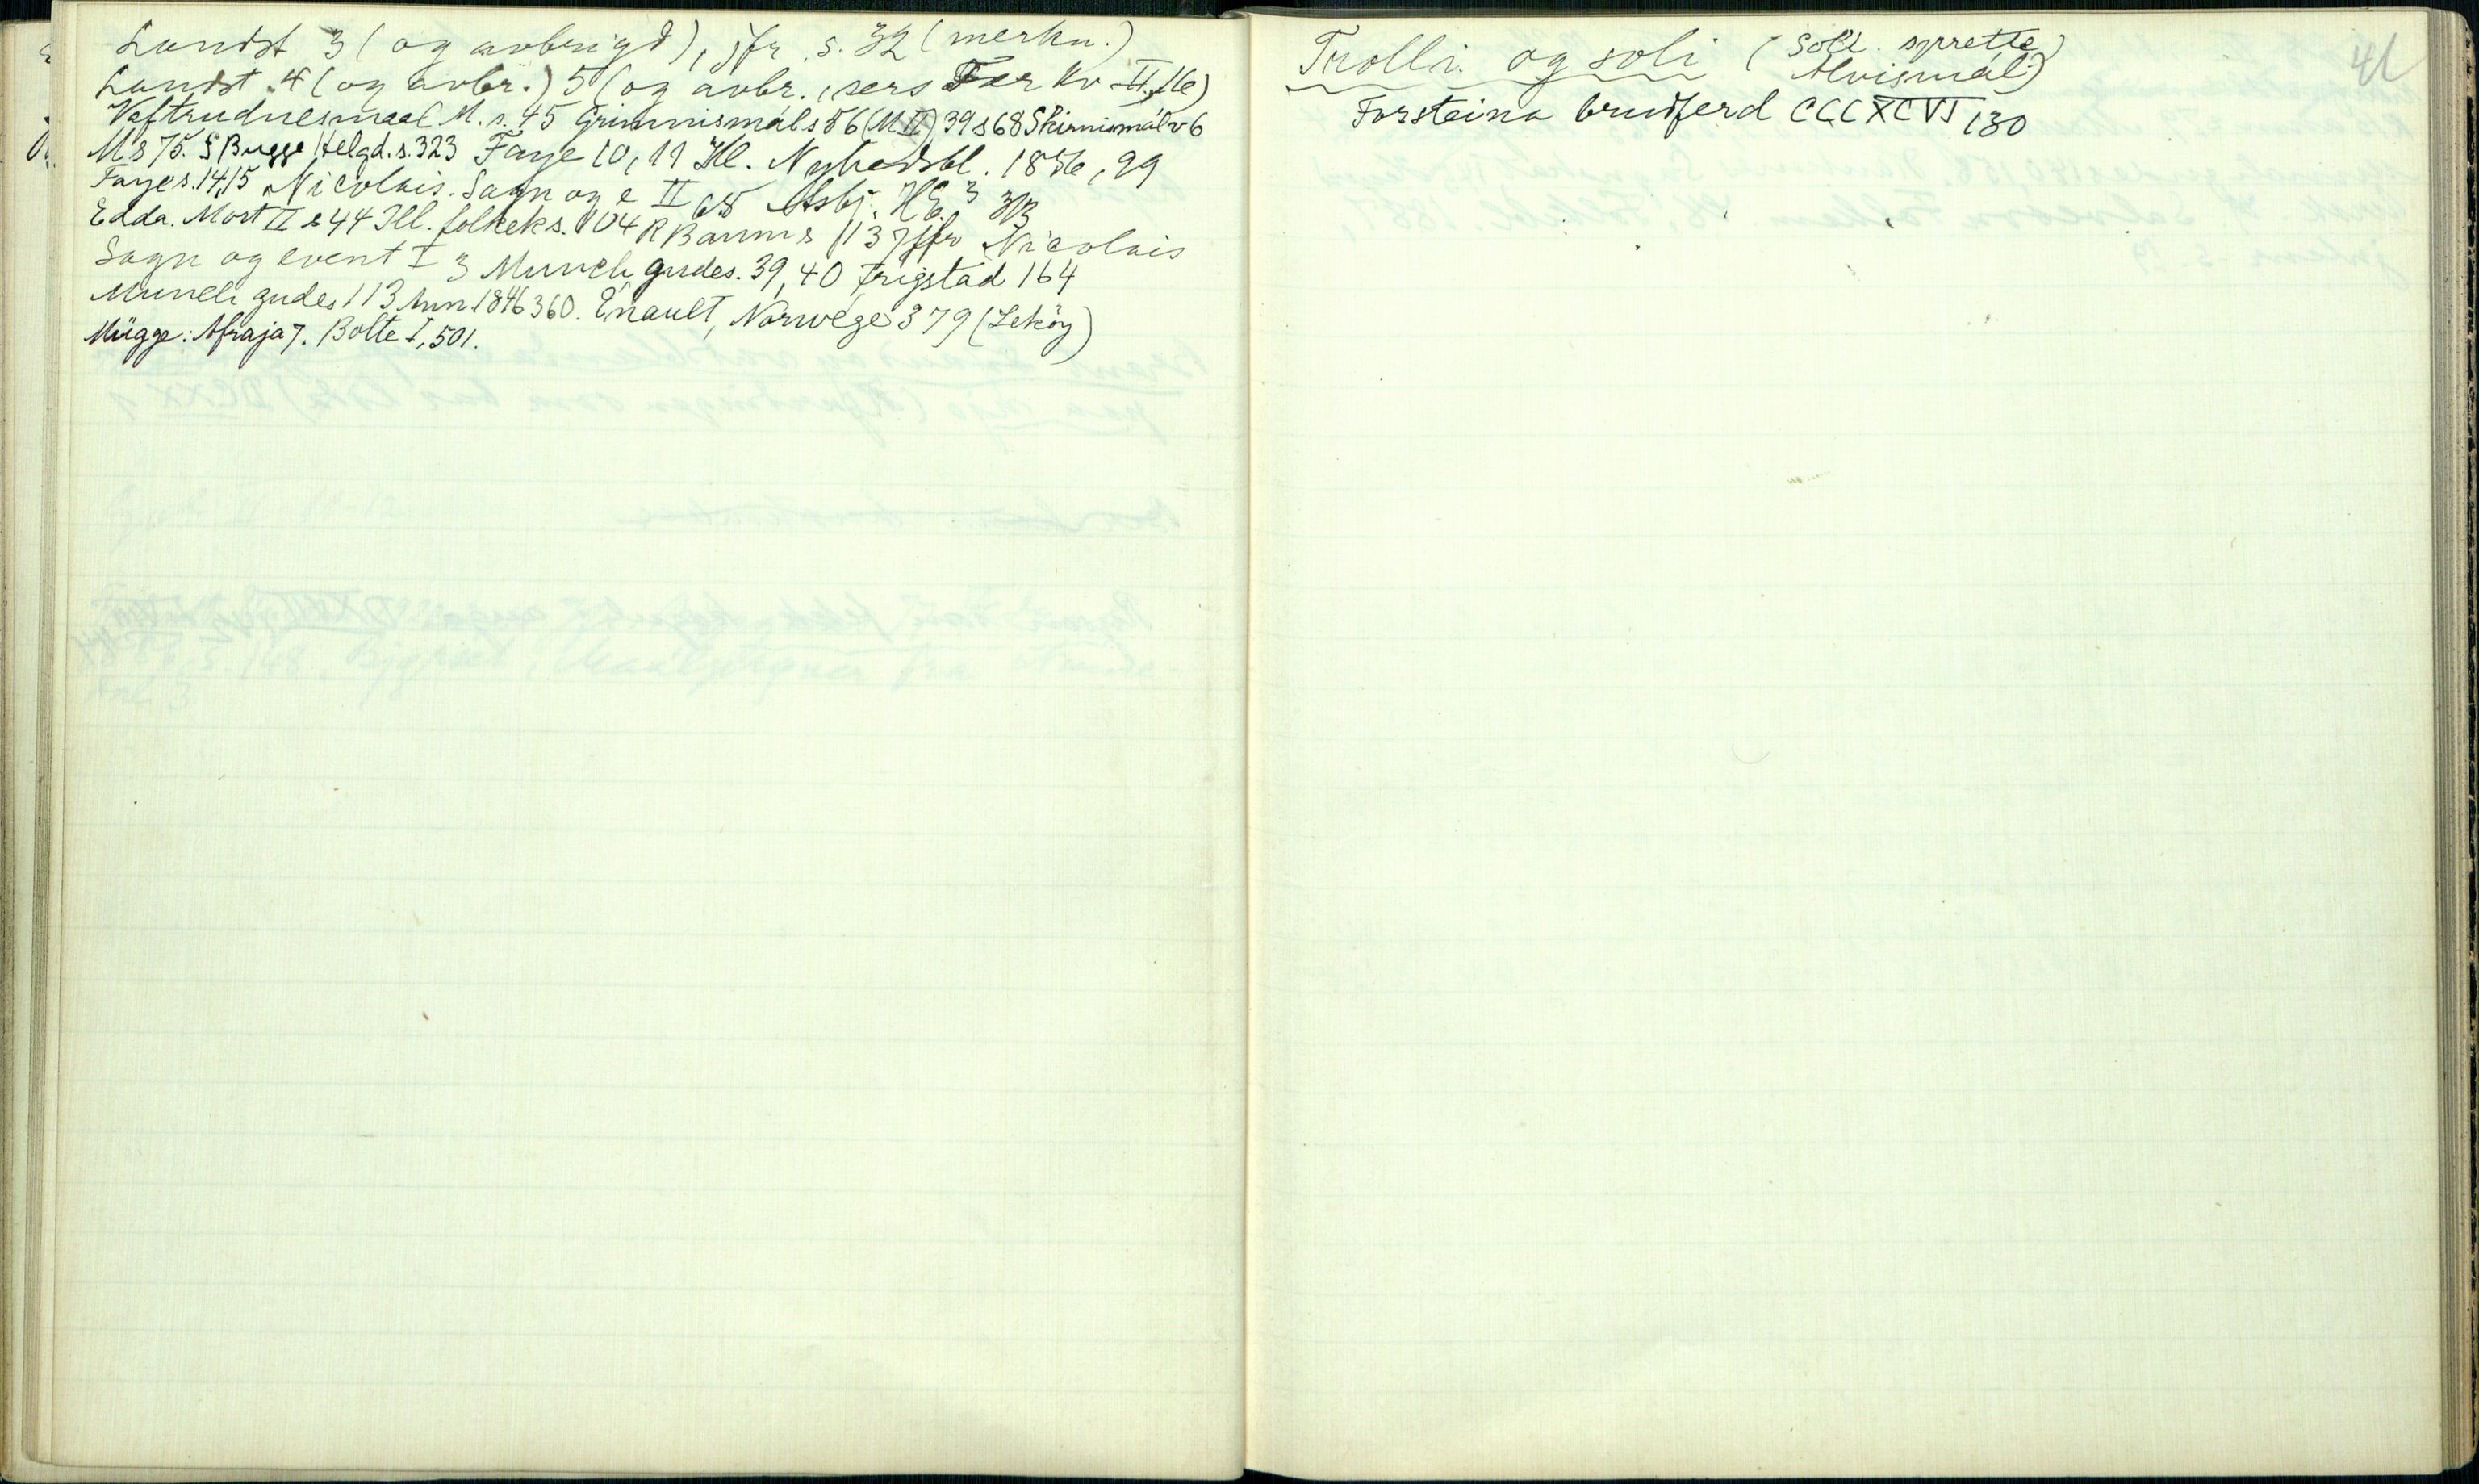 Landst 3 (og avbrigd), jfr. s. 32 (merkn.)
Landst. 4 (og avbr.) 5 (og avbr., sers Fær Kv II, 16)
Vaftrudnesmaal M. s. 45 Grimnismál s 56 (M II) 39 s 68 Skirnismál v 6
M s 75. S Bugge Helgd. s. 323 Faye 10, 11 Ill. Nyhedsbl. 1856, 99
Faye s. 14, 15 Nicolais. Sagn og e II 68 Asbj. HE.³ 313
Edda. Mort II s 44 Ill. folkeks. 104 R Baum s 137 jfr Nicolais
Sagn og event I 3 Munch gudes. 39, 40 Frigstad 164
Munch gudes 113 Ann 1846 360. Énault, Norvége 379 (Leköy)
Mügge: Afraja 7. Bolte I, 501.
Trolli og soli (Soli. sprette
Alvismál)
Torsteina brudferd CCCXCVI 130
41